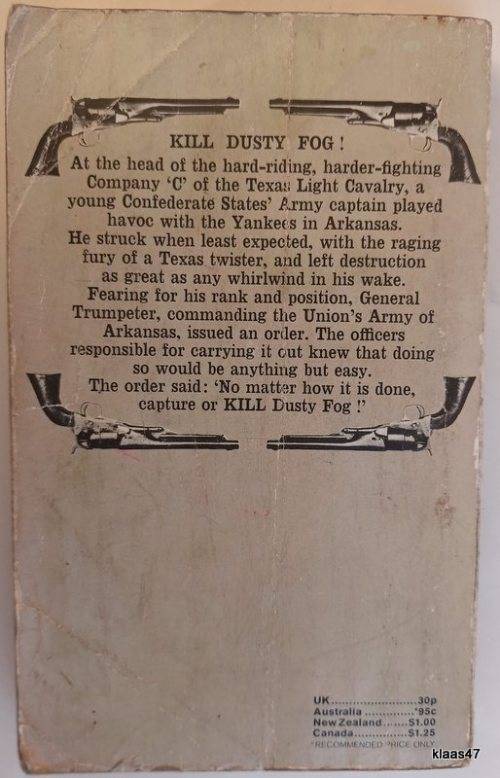 KILL DUSTY FOG !
At the head of the hard-riding, harder-fighting
Company 'C' of the Texas Light Cavalry, a
young Confederate States' Army captain played
havoc with the Yankees in Arkansas.
He struck when least expected, with the raging
fury of a Texas twister, and left destruction
as great as any whirlwind in his wake.
Fearing for his rank and position, General
Trumpeter, commanding the Union's Army of
Arkansas, issued an order. The officers
responsible for carrying it out knew that doing
so would be anything but easy.
The order said: 'No matter how it is done,
capture or KILL Dusty Fog !'
UK........................30p
Australia ..............*95c
New Zealand.......$1.00
Canada................$1.25
*RECOMMENDED PRICE ONLY
klaas47